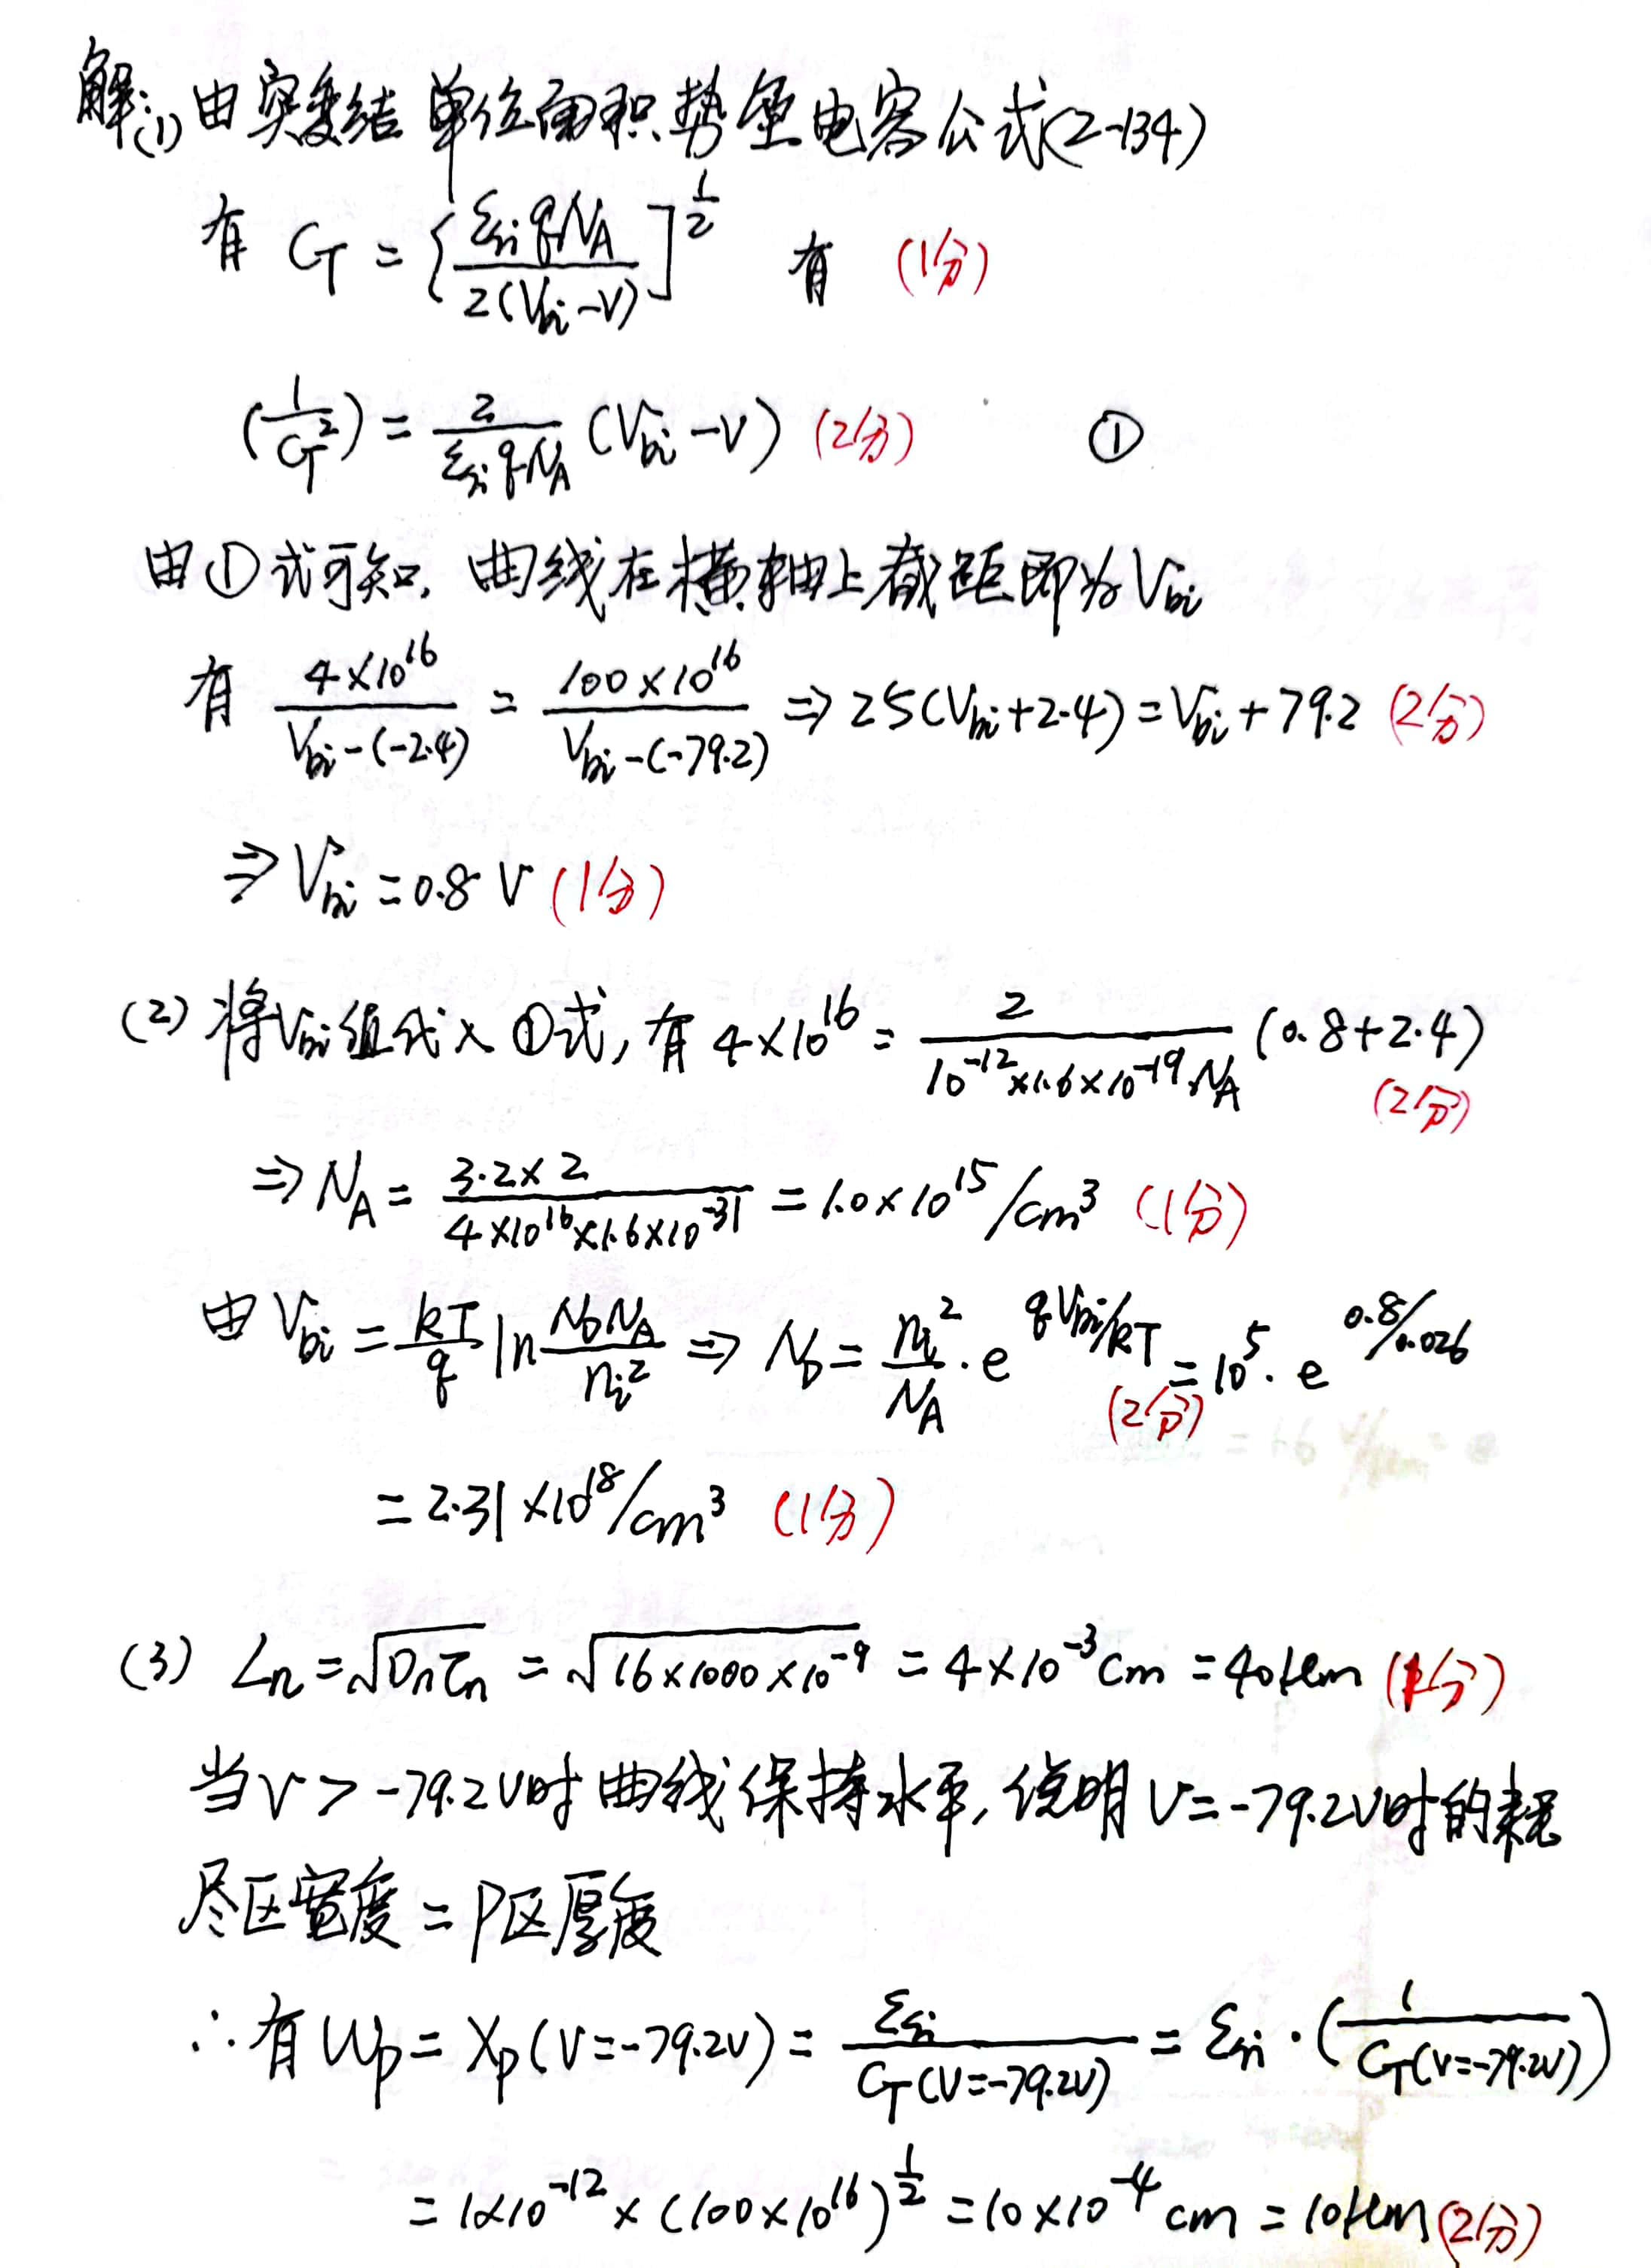 解:(1)由突变结单位面积势垒电容公式(2-134)
有 C_T = {ε_si q N_A / 2(V_bi-V)]^{1/2} 有 (1分)
(1/C_T^2) = 2/(ε_si q N_A) (V_bi-V) (2分) ①
由①式可知, 曲线在横轴上截距即为V_bi
有 4×10^16/(V_bi-(-2.4)) = 100×10^16/(V_bi-(-79.2)) ⇒ 25(V_bi+2.4)=V_bi+79.2 (2分)
⇒ V_bi=0.8 V (1分)
(2) 将V_bi值代入①式, 有 4×10^16 = 2/(10^-12×1.6×10^-19×N_A) (0.8+2.4) (2分)
⇒ N_A = 3.2×2/(4×10^16×1.6×10^-31) = 1.0×10^15/cm^3 (1分)
由 V_bi = kT/q ln N_D N_A/n_i^2 ⇒ N_D = n_i^2/N_A · e^{qV_bi/kT} (2分) = 10^5 · e^{0.8/0.026}
= 2.31×10^18/cm^3 (1分)
(3) L_n = √(D_n τ_n) = √(16×1000×10^-9) = 4×10^-3 cm = 40μm (1分)
当V > -79.2V时曲线保持水平, 说明V=-79.2V时的耗
尽区宽度 = P区厚度
∴ 有 W_p = X_p(V=-79.2V) = ε_si/C_T(V=-79.2V) = ε_si · (1/C_T(V=-79.2V))
= 1×10^-12 × (100×10^16)^{1/2} = 10×10^-4 cm = 10μm (2分)